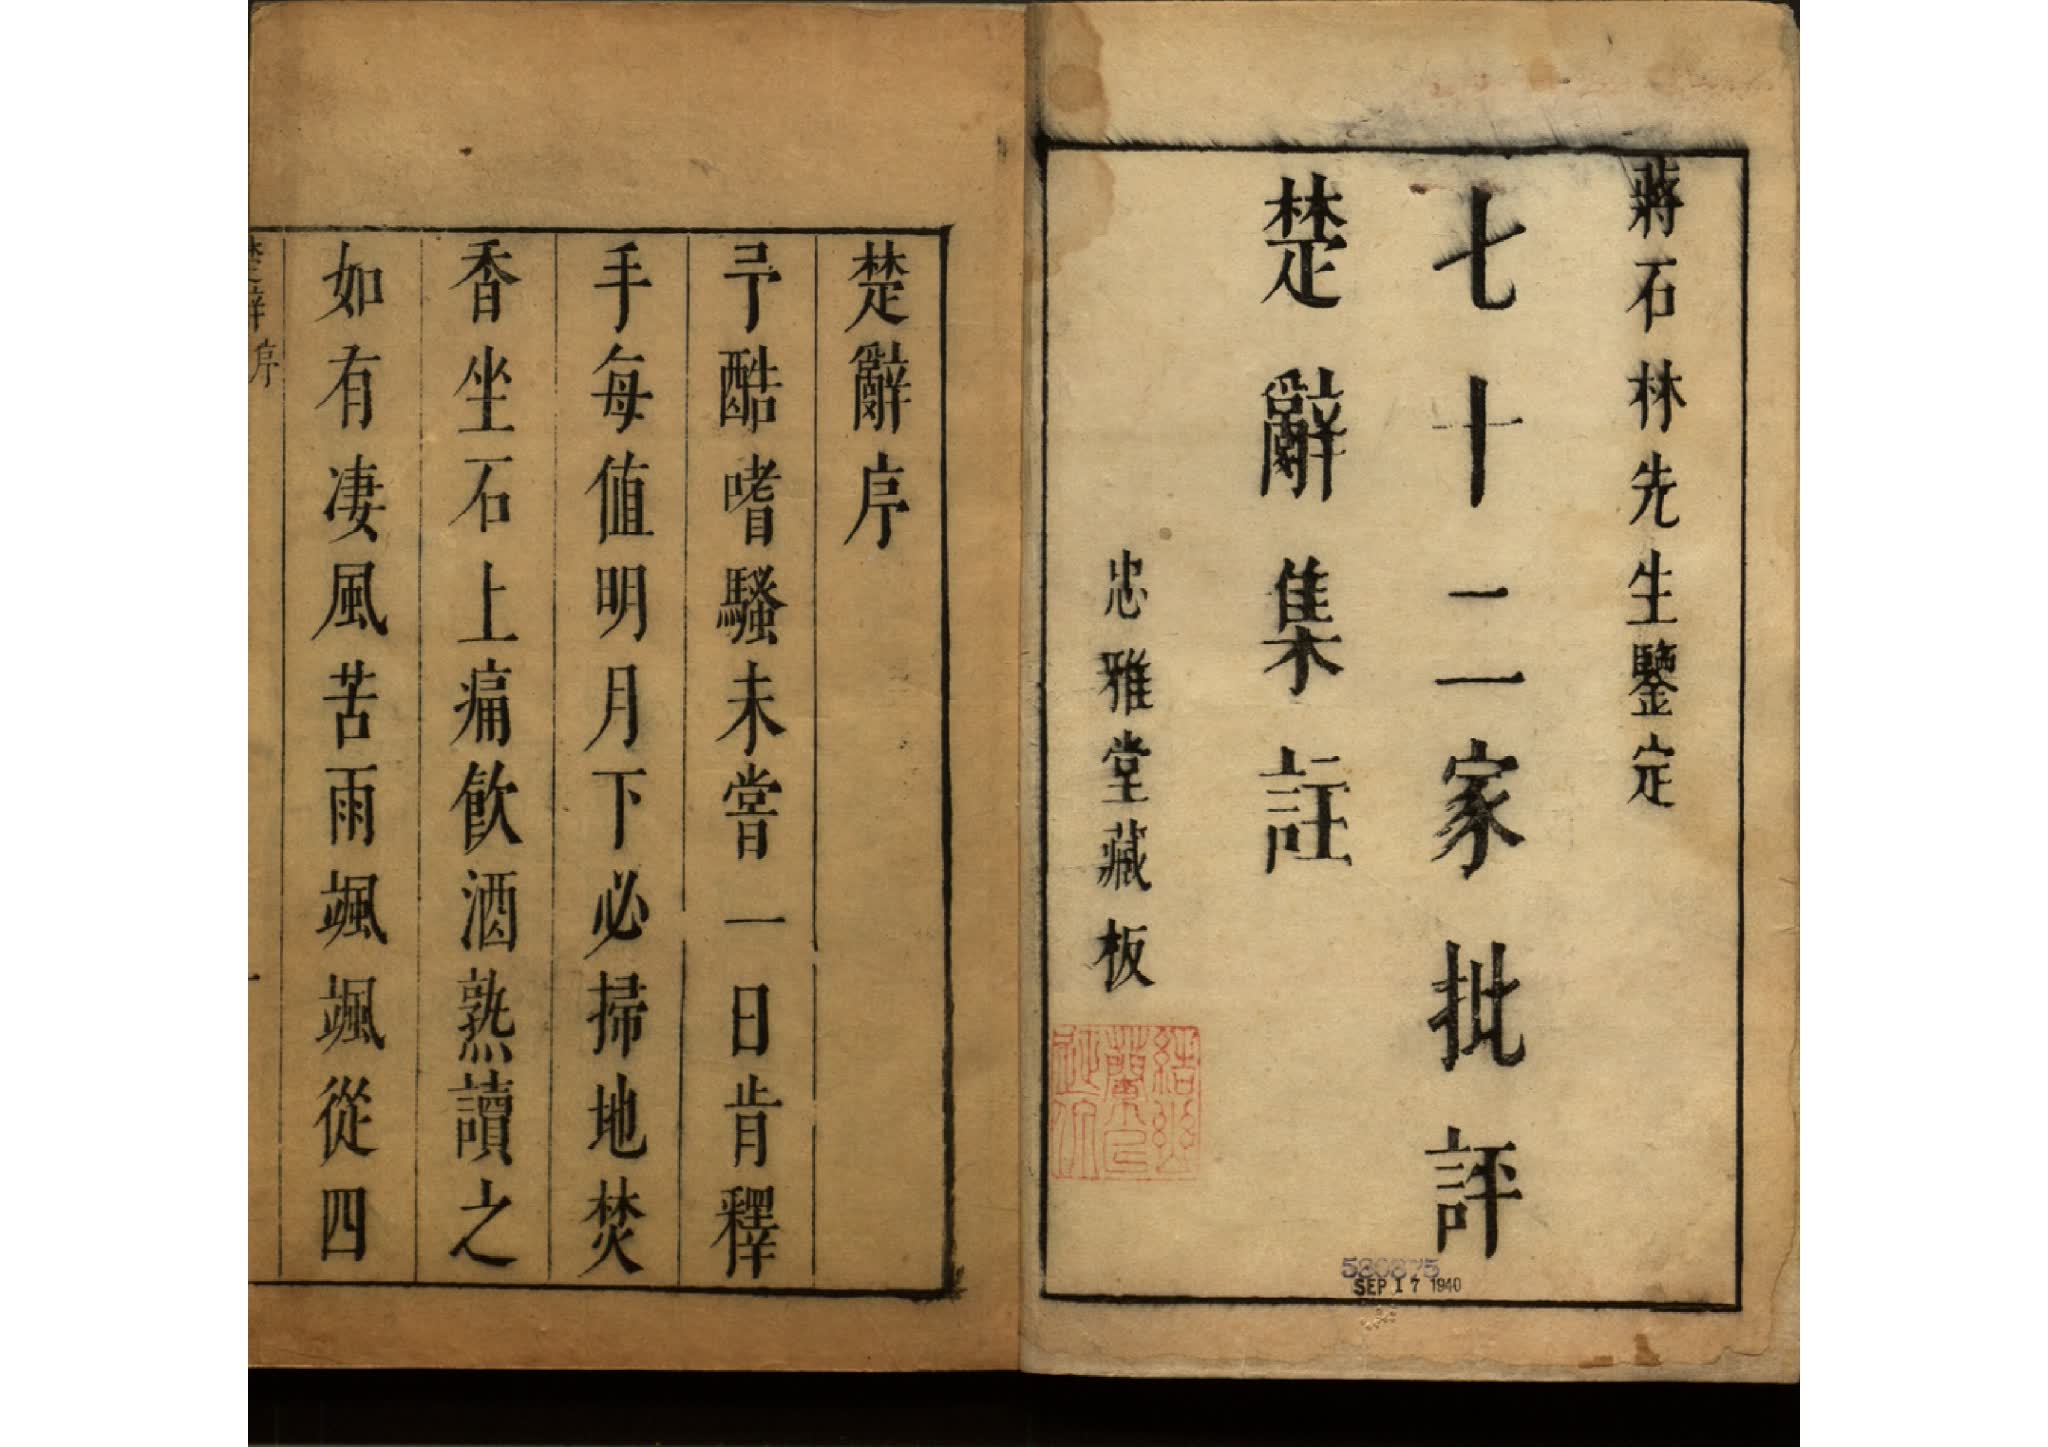 蔣石林先生鑒定
七十二家批評
楚辭集註
忠雅堂藏板
580875
SEP 17 1940
楚辭序
予酷嗜騷未嘗一日肯釋
手每值明月下必掃地焚
香坐石上痛飲酒熟讀之
如有凄風苦雨颯颯從四
楚辭序
一